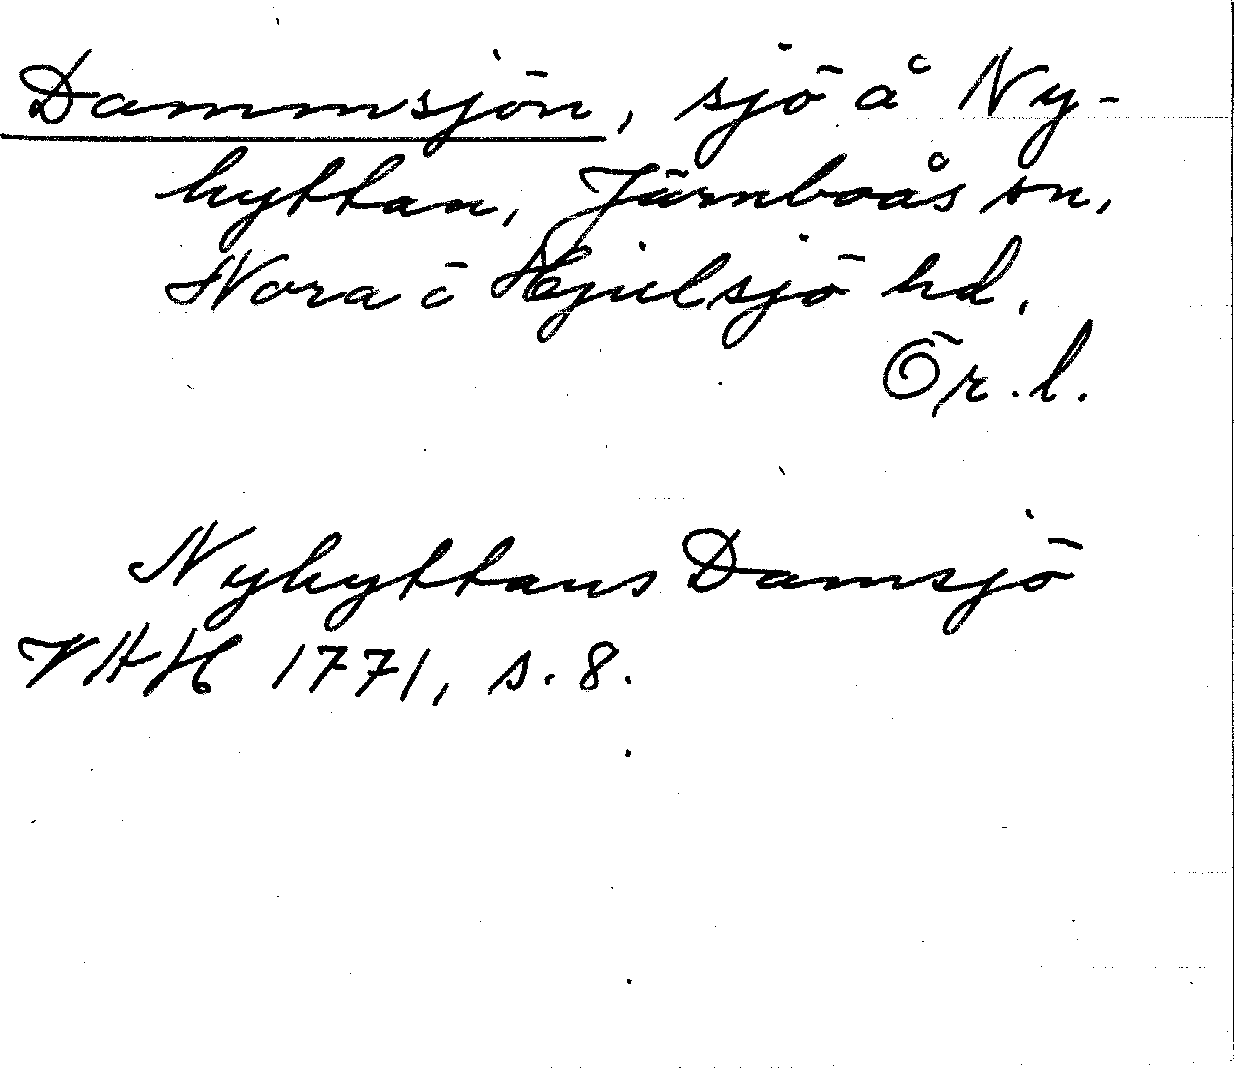 Dammsjön, sjö å Ny-
hyttan, Järnboås sn,
Nora ō Hjulsjö hd,
Ör. l.
Nyhyttans Damsjö
VAH 1771, s. 8.